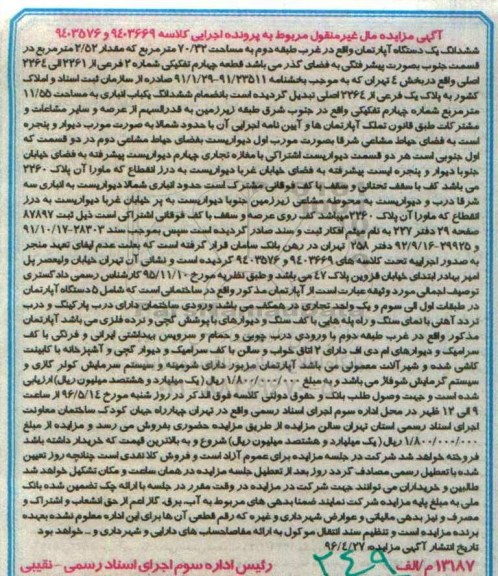 آگهی مزایده مال غیرمنقول مربوط به پرونده اجرایی کلاسه ۹۴۰۳۶۶۹ و ۹۴۰۳۵۷۶
ششدانگ یک دستگاه آپارتمان واقع در غرب طبقه دوم به مساحت ۷۰/۳۲ مترمربع که مقدار ۲/۵۲ مترمربع در
قسمت جنوب بصورت پیشرفتگی به فضای گذر می باشد قطعه چهارم تفکیکی شماره ۲ فرعی از ۲۲۶۱ الی ۲۲۶۴
اصلی واقع در بخش ۴ تهران که به موجب بخشنامه ۹۱/۲۳۵۱۱-۹۱/۱/۲۹ صادره از سازمان ثبت اسناد و املاک
کشور به پلاک یک فرعی از ۲۲۶۴ اصلی تبدیل گردیده است بانضمام ششدانگ یکباب انباری به مساحت ۱۱/۵۵
مترمربع شماره چهارم تفکیکی واقع در جنوب شرق طبقه زیرزمین به قدرالسهم از عرصه و سایر مشاعات و
مشترکات طبق قانون تملک آپارتمان ها و آیین نامه اجرایی آن با حدود شمالا به صورت مورب دیوار و پنجره
است به فضای حیاط مشاعی شرقا بصورت مورب اول دیواریست بفضای حیاط مشاعی دوم در دو قسمت که
اول جنوبی است هر دو قسمت دیواریست اشتراکی با مغازه تجاری چهارم دیواریست پیشرفته به فضای خیابان
جنوبا دیوار و پنجره ایست پیشرفته به فضای خیابان غربا دیواریست به درز انقطاع که ماورا آن پلاک ۲۲۶۰
می باشد کف با سقف تحتانی و سقف با کف فوقانی مشترک است حدود انباری شمالا دیواریست به انباری سه
شرقا درب و دیواریست به محوطه مشاعی زیرزمین جنوبا دیواریست به پر خیابان غربا دیواریست به درز
انقطاع که ماورا آن پلاک ۲۲۶۰ میباشد کف روی عرصه و سقف با کف فوقانی اشتراکی است ذیل ثبت ۸۷۸۹۷
صفحه ۲۹ دفتر ۲۲۷ به نام میثم افکار ثبت و سند صادر گردیده است سپس بموجب سند ۲۸۳۰۳-۹۱/۱۰/۱۷
و ۲۹۹۲۵-۹۲/۹/۱۶ دفتر ۲۵۸ تهران در رهن بانک سامان قرار گرفته است که بعلت عدم ایفای تعهد منجر
به صدور اجراییه تحت کلاسه های ۹۴۰۳۶۶۹ و ۹۴۰۳۵۷۶ گردیده است و نشانی آن تهران خیابان ولیعصر پل
امیر بهادر ابتدای خیابان قزوین پلاک ۴۷ می باشد و طبق نظریه مورخ ۹۵/۱۱/۱۰ کارشناس رسمی دادگستری
توصیف اجمالی مورد وثیقه عبارت است از آپارتمان مذکور واقع در ساختمانی است که شامل ۵ دستگاه آپارتمان
در طبقات اول الی سوم و یک واحد تجاری در همکف می باشد ورودی ساختمان دارای درب پارکینگ و درب
تردد آهنی با نمای سنگ و راه پله هایی با کف سنگ و دیوارهای با پوشش گچی و نرده فلزی می باشد آپارتمان
مذکور واقع در غرب طبقه دوم با ورودی درب چوبی و حمام و سرویس بهداشتی ایرانی و فرنگی با کف
سرامیک و دیوارهای ام دی اف دارای ۲ اتاق خواب و سالن با کف سرامیک و دیوار گچی و آشپزخانه با کابینت
کاشی شده و شیرآلات معمولی می باشد آپارتمان مزبور دارای شومینه و سیستم سرمایش کولر گازی و
سیستم گرمایش شوفاژ می باشد و به مبلغ ۱/۸۰۰/۰۰۰/۰۰۰ ریال (یک میلیارد و هشتصد میلیون ریال) ارزیابی
شده است و جهت وصول طلب بانک و حقوق دولتی کلاسه فوق الذکر در روز شنبه مورخ ۹۶/۵/۱۴ از ساعت
۹ الی ۱۲ ظهر در محل اداره سوم اجرای اسناد رسمی واقع در تهران چهارراه جهان کودک ساختمان معاونت
اجرای اسناد رسمی استان تهران سالن مزایده از طریق مزایده حضوری بفروش می رسد و مزایده از مبلغ
۱/۸۰۰/۰۰۰/۰۰۰ ریال (یک میلیارد و هشتصد میلیون ریال) شروع و به بالاترین قیمت که خریدار داشته باشد
فروخته خواهد شد شرکت در جلسه مزایده برای عموم آزاد است و فروش کلا نقدی است چنانچه روز تعیین
شده با تعطیل رسمی مصادف گردد روز بعد از تعطیل جلسه مزایده در همان ساعت و مکان تشکیل خواهد شد
طالبین و خریداران می توانند جهت شرکت در مزایده در وقت مقرر در جلسه با ارائه چک تضمین شده بانک
ملی به مبلغ پایه مزایده شرکت نمایند ضمنا بدهی های مربوط به آب، برق، گاز اعم از حق انشعاب و اشتراک و
مصرف و نیز بدهی مالیاتی و عوارض شهرداری و غیره که رقم قطعی آن ها برای این اداره معلوم نشده بعهده
برنده مزایده است و تنظیم سند انتقال موکول به ارائه مفاصاحساب های دارایی و شهرداری و... خواهد بود
تاریخ انتشار آگهی مزایده: ۹۶/۴/۲۷
۱۳۱۸۷/م الف ۲۴۹ رئیس اداره سوم اجرای اسناد رسمی - نقیبی